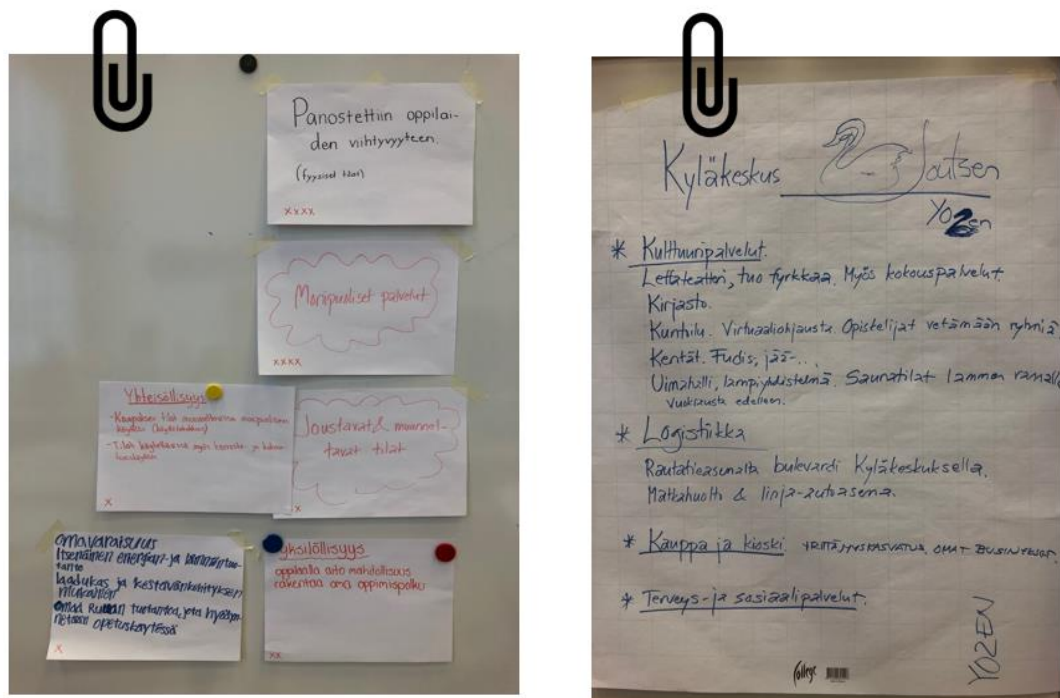 Panostettiin oppilai-
den viihtyvyyteen.
(fyysiset tilat)
xxxx
Monipuoliset palvelut
xxxx
Yhteisöllisyys
- Tilat käytettävissä myös
x
Joustavat & muunnel-
tavat tilat
x
omavaraisuus
Itsenäinen energian- ja
tanto
laadukas ja kestävänkehityksen
mukainen
omaa Ruuan tuotantoa, jota hyödyn-
netään opetuskäytössä
x
yksilöllisyys
oppilaalla aito mahdollisuus
rakentaa oma oppimispolku
xx
Kyläkeskus Joutsen
YO2en
* Kulttuuripalvelut.
tuo fyrkkaa. Myös kokouspalvelut.
Kirjasto.
Kuntoilu. Virtuaaliohjausta. Opiskelijat vetämään ryhmiä
Kentät. Fudis, jää-...
Uimahalli, lampiyhdistelmä. Saunatilat lammen rannalla
vuokrausta edelleen.
* Logistiikka
Rautatieasemalta bulevardi Kyläkeskukselle.
Matkahuolto & linja-autoasema.
* Kauppa ja kioski YRITTÄJYYSKASVATUS, OMAT
* Terveys- ja sosiaalipalvelut.
YO2EN
College